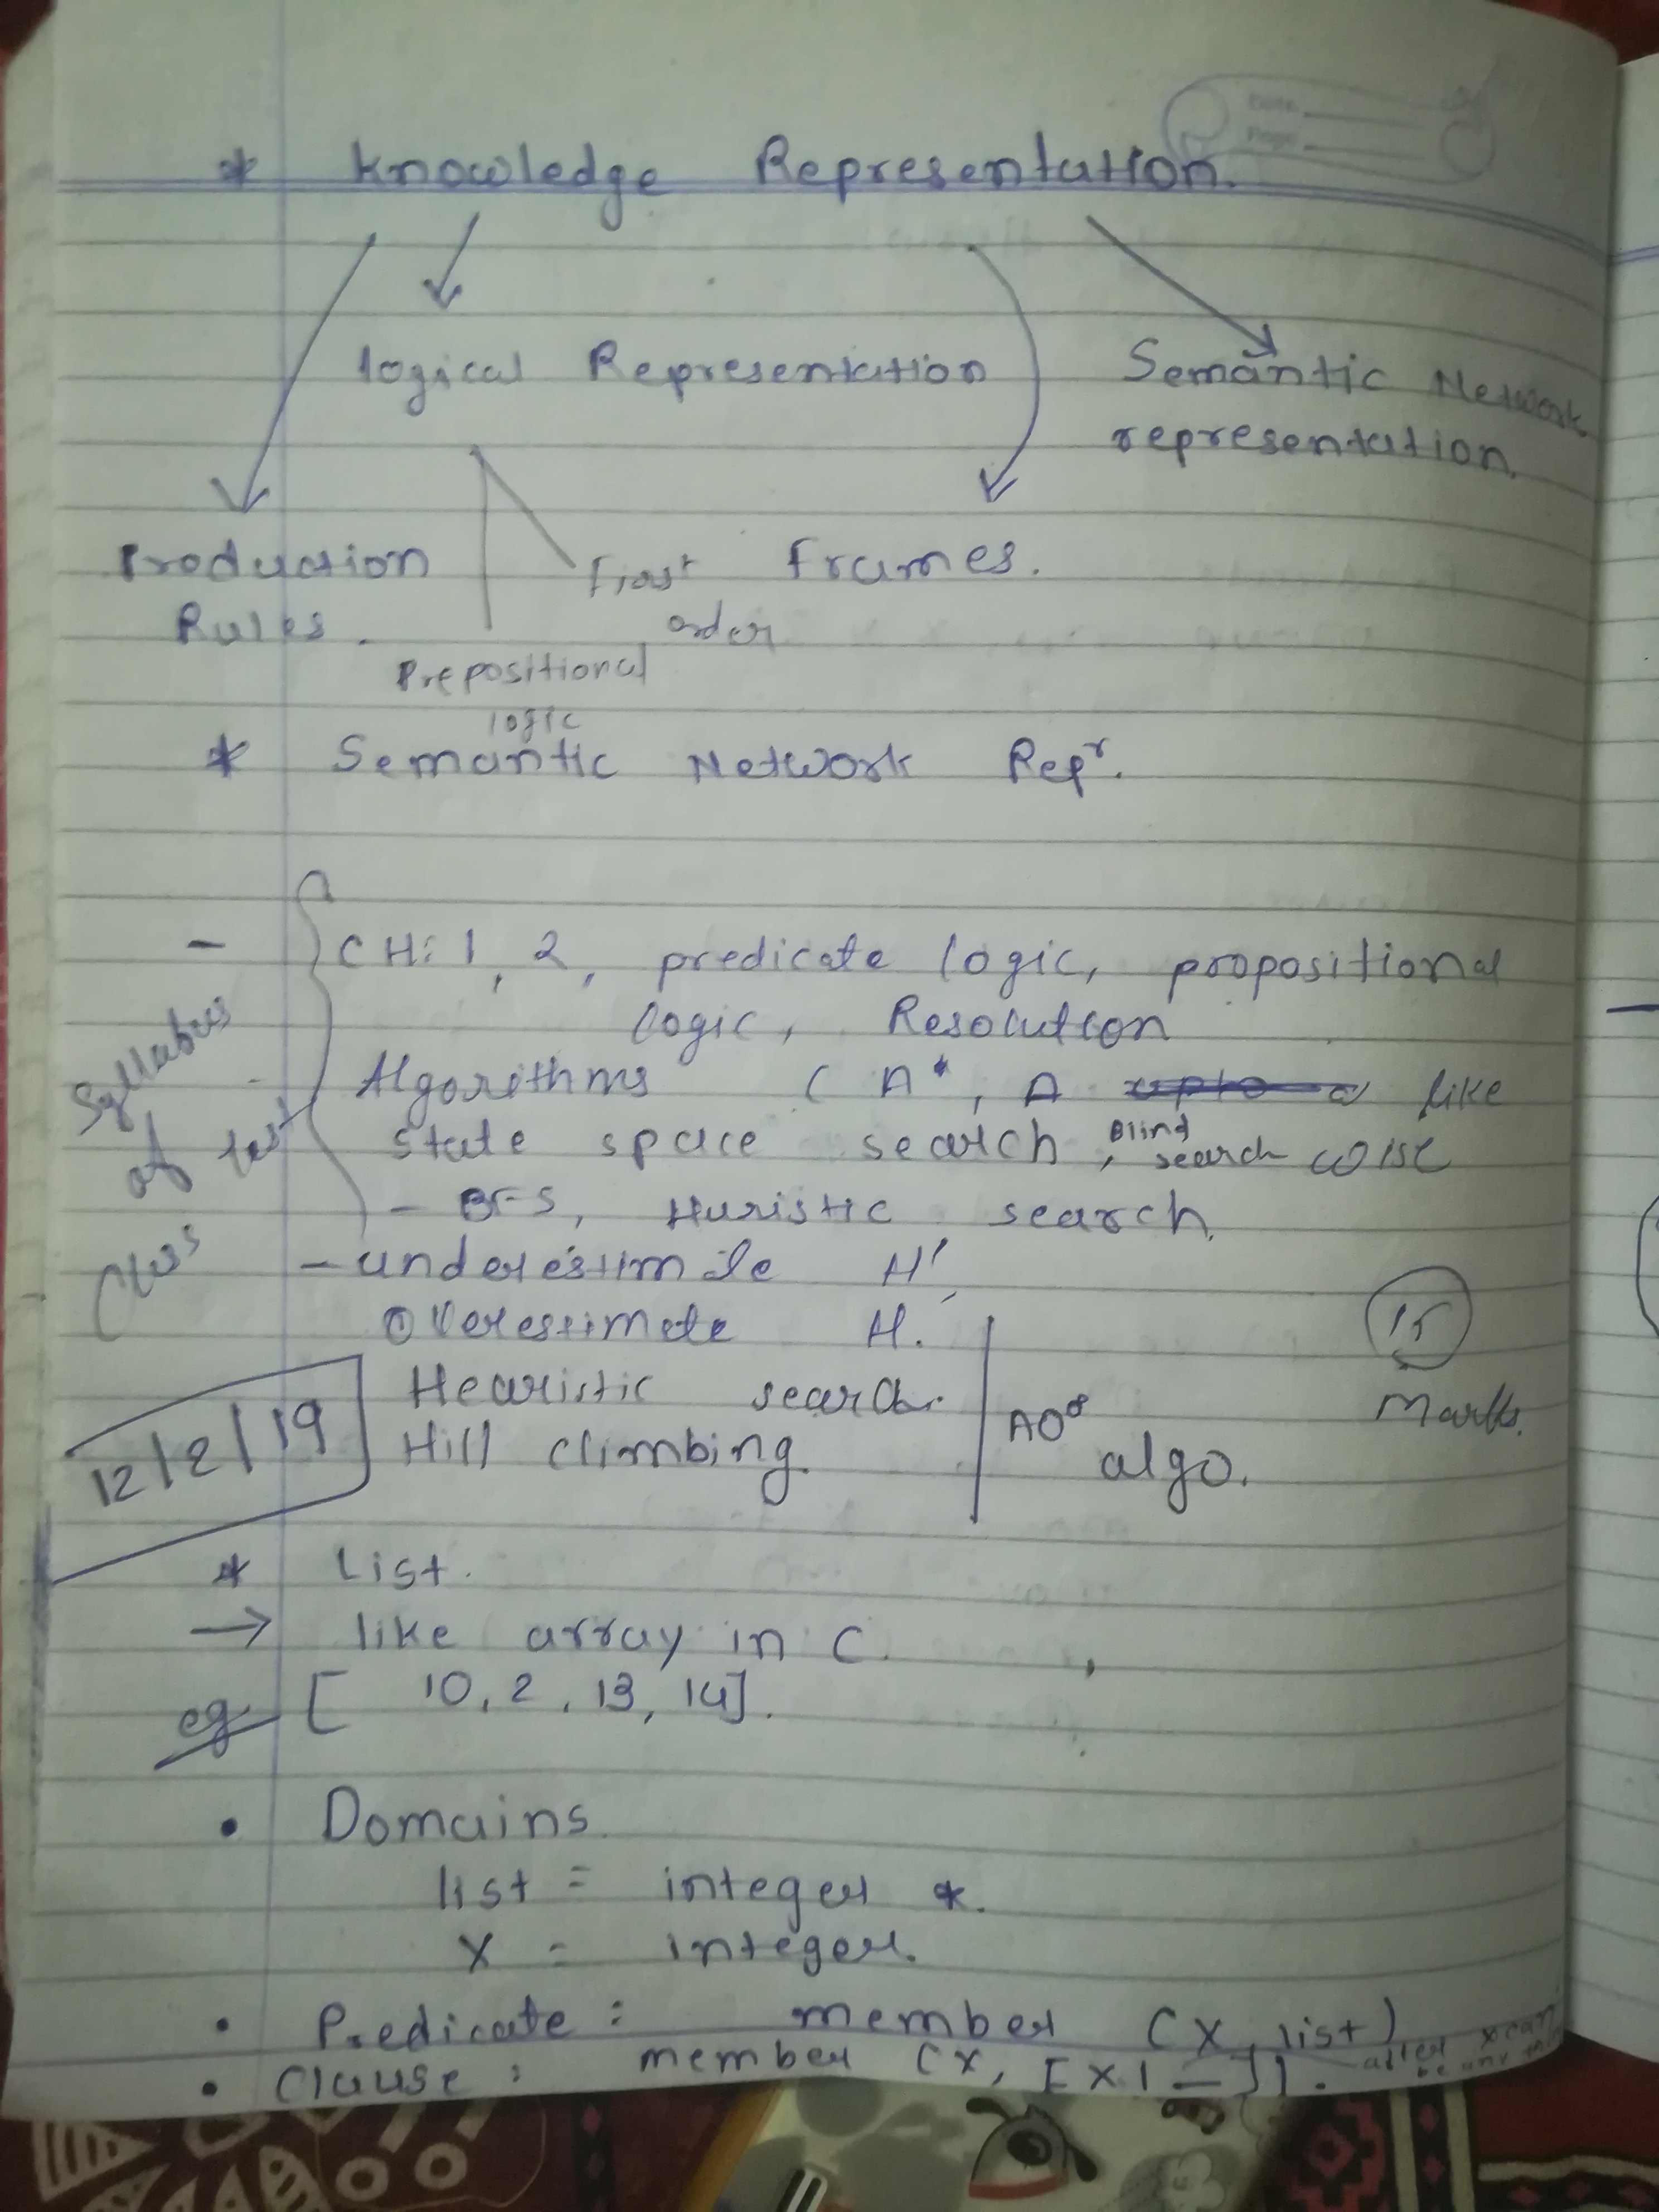 Date
Page
* Knowledge Representation.
logical Representation
Semantic Network
representation.
Production
Rules.
First
order
Frames.
Prepositional
logic
* Semantic Network Repr.
- CH: 1, 2, predicate logic, propositional
logic, Resolution
Algorithms ( A*, A like
state space search, Blind search wise
- BFS, Huristic search.
Syllabus
of test
- underestimate H',
Overestimate H.
15
Marks.
Hearistic search.
Hill climbing.
AO*
algo.
12/2/19
* List.
→ like array in C.
eg [ 10, 2, 13, 14].
• Domains
list = integer *.
X = integer.
• Predicate: member (X, list)
• Clause: member (X, [X|_]). after x can
be any